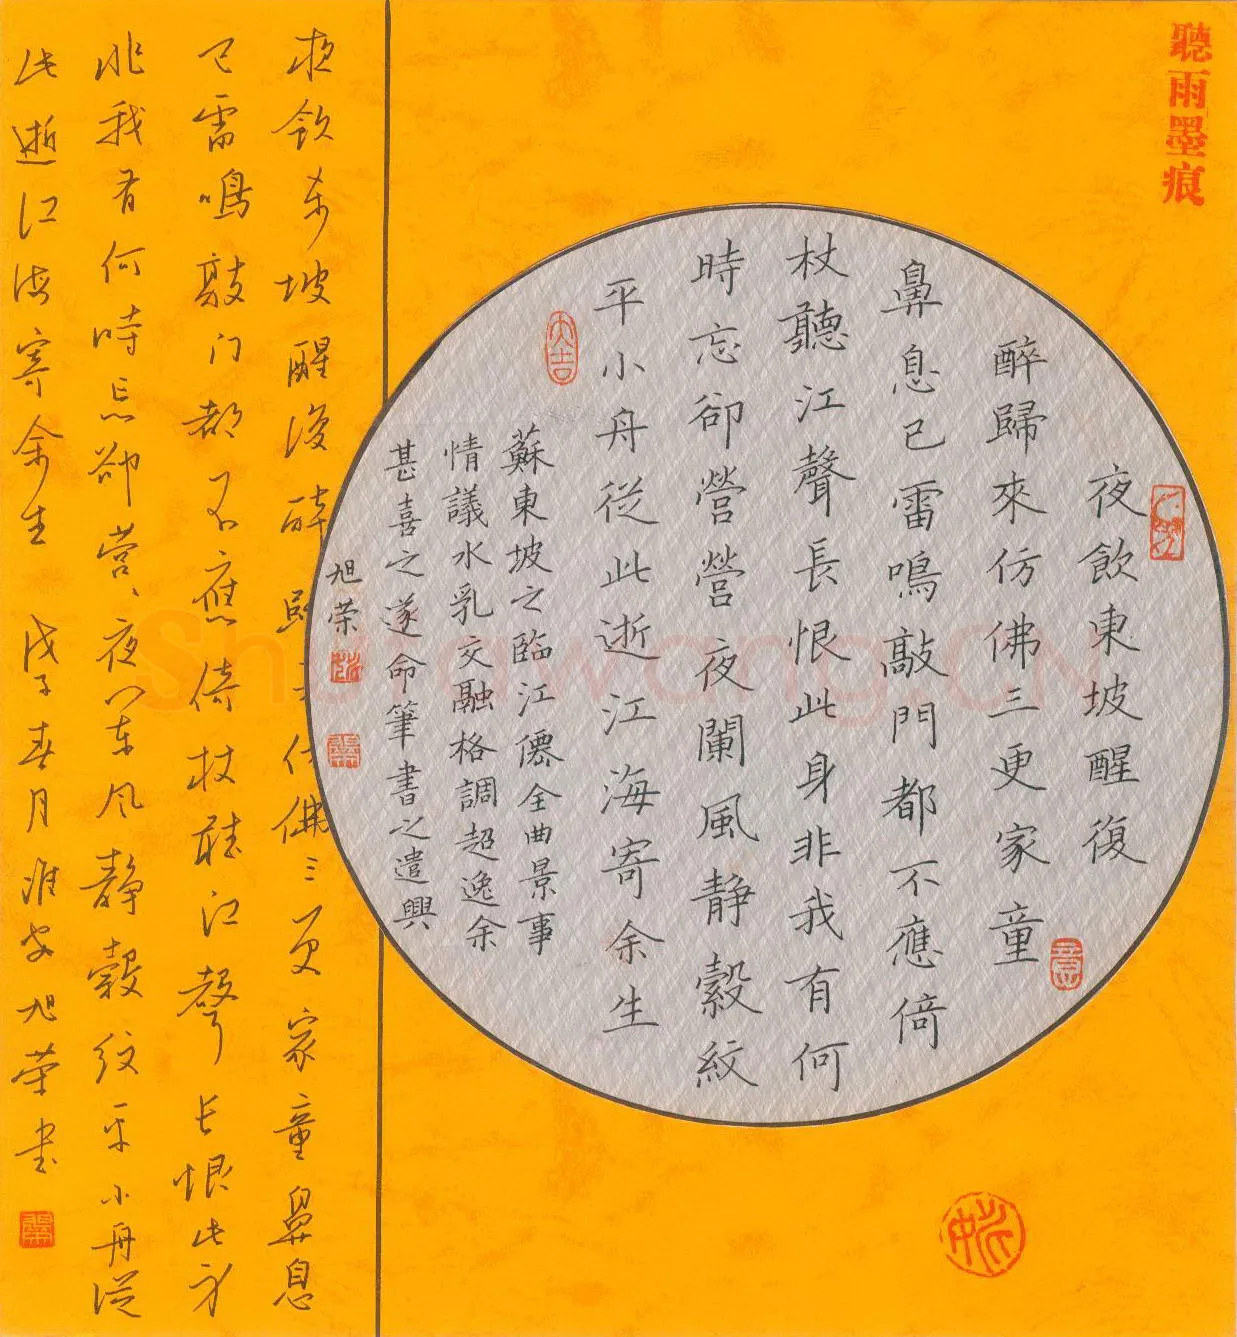 聽雨墨痕
夜飲東坡醒復
醉歸來仿佛三更家童
鼻息已雷鳴敲門都不應倚
杖聽江聲長恨此身非我有何
時忘卻營營夜闌風靜縠紋
平小舟從此逝江海寄余生
大吉
蘇東坡之臨江僊全曲景事
情議水乳交融格調超逸余
甚喜之遂命筆書之遣興
旭荣
夜飲东坡醒復醉歸来仿佛三更家童鼻息
已雷鳴敲门都不應倚杖聴江聲长恨此身
非我有何時忘卻营々夜阑风靜縠紋平小舟從
此逝江海寄余生 戊子春月淮安旭荣书
Shufawang.CN